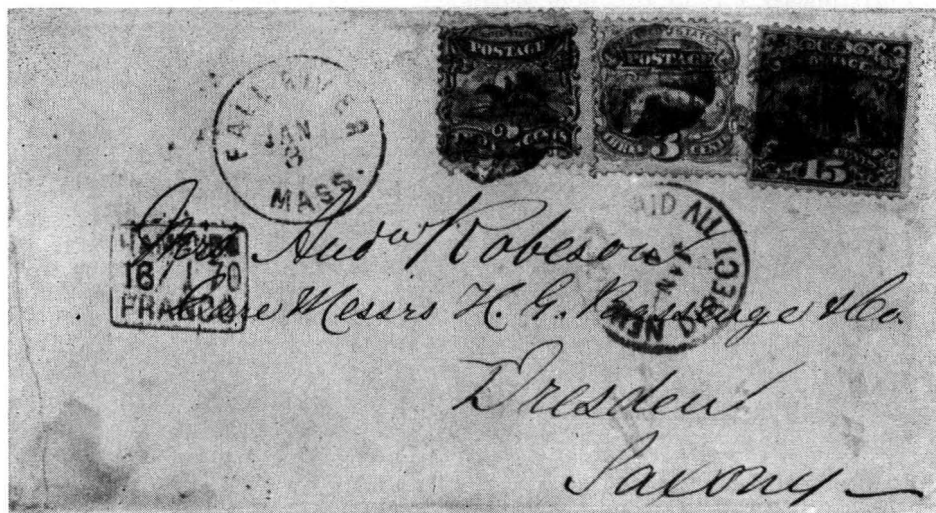 POSTAGE
2 CENTS
POSTAGE
THREE 3 CENTS
15
FALL RIVER
JAN
3
MASS.
PAID ALL
DIRECT
NEW
JAN
16 1 70
FRANCO
Mrs Andw Robeson
Care Messrs H. G. Bassenge & Co.
Dresden
Saxony